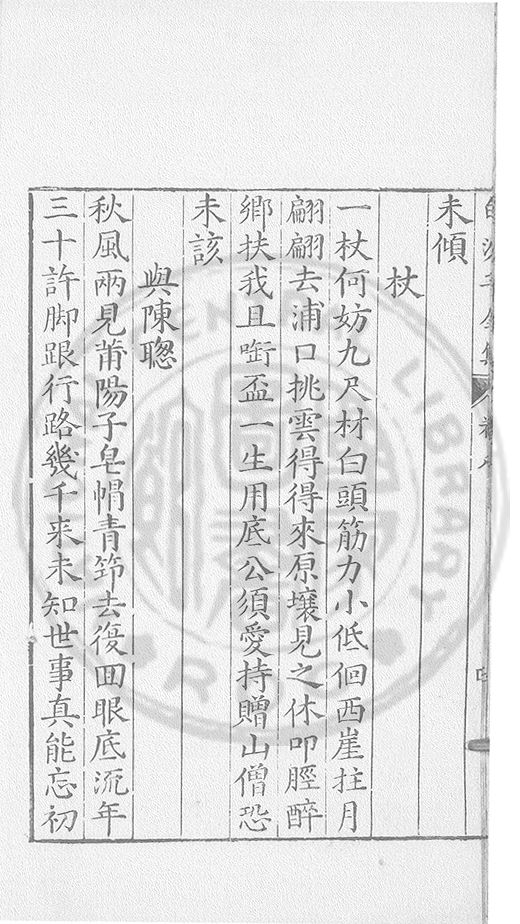 未傾
杖
一杖何妨九尺材白頭筋力小低佪西崖拄月
翩翩去浦口挑雲得得來原壤見之休叩脛醉
鄉扶我且㗸盃一生用底公須愛持贈山僧恐
未該
與陳聰
秋風兩見莆陽子皂帽青笻去復囬眼底流年
三十許脚跟行路幾千来未知世事真能忘初